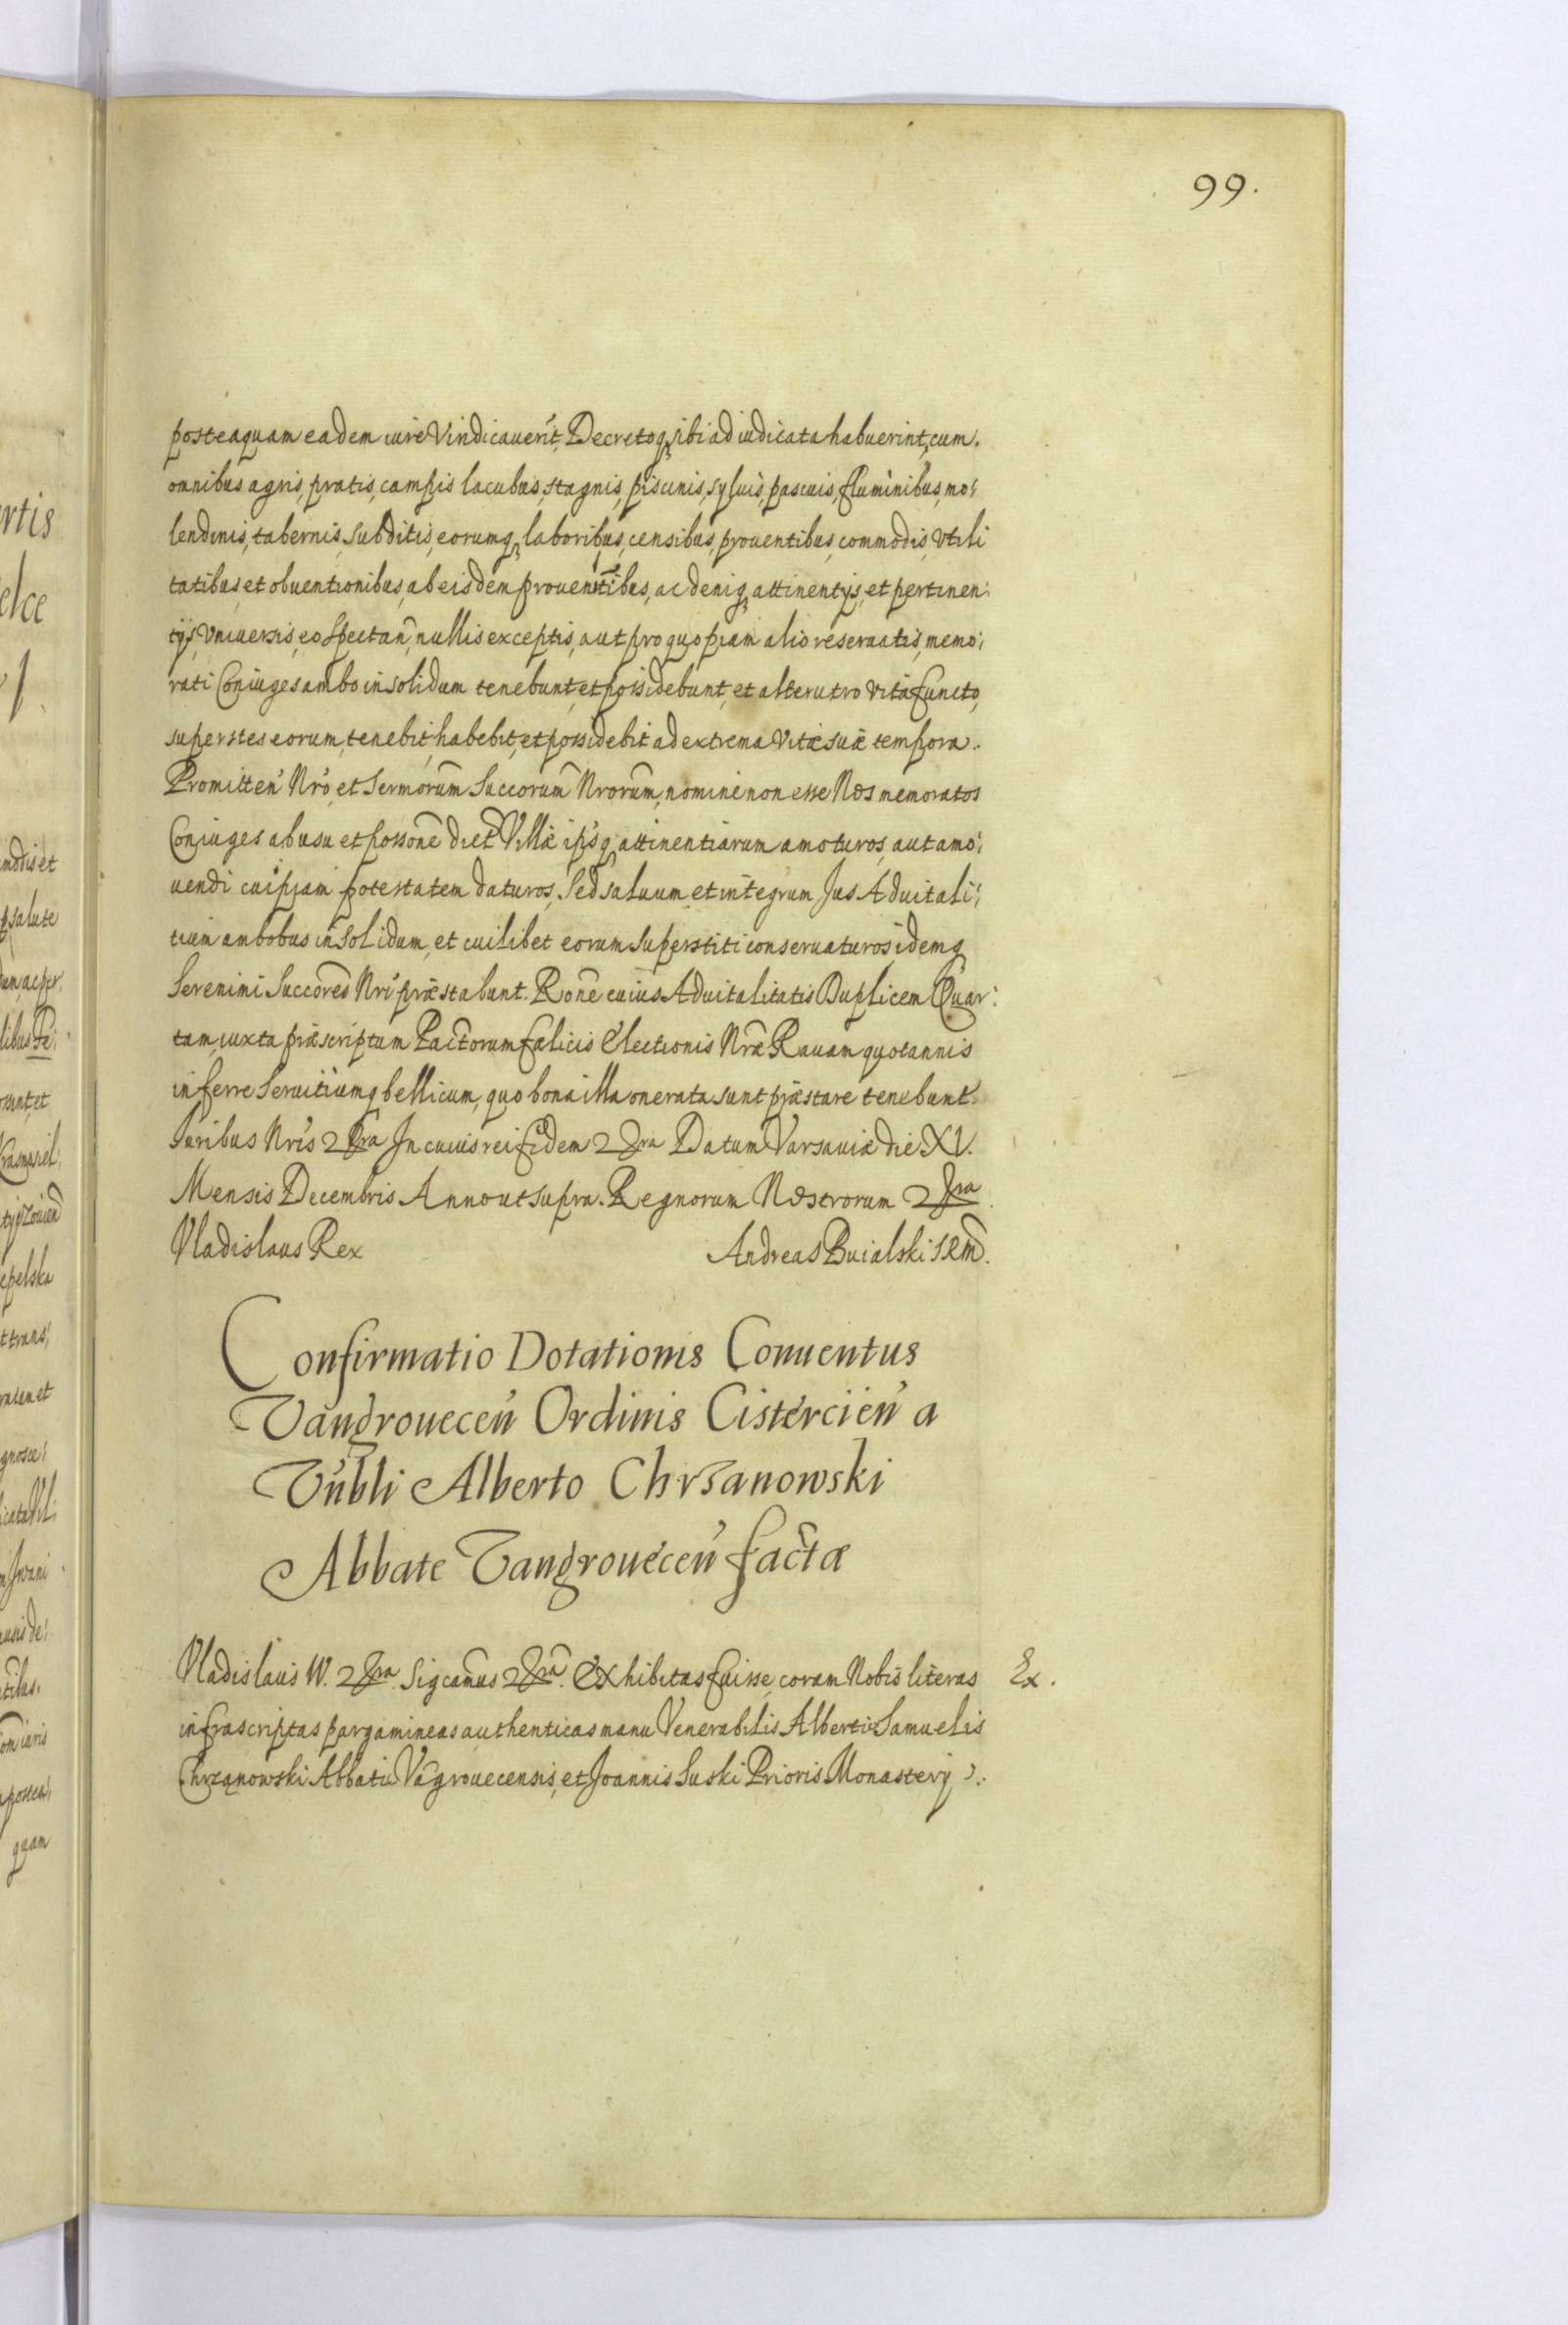 99.
posteaquam eadem iure Vindicauerīt, Decretoq, sibi adiudicata habuerint, cum.
omnibus agris, pratis, campis lacubus, stagnis, piscinis, syluis, pascuis, fluminibus, mo:
lendinis, tabernis, subditis, eorumq, laboribus, censibus, prouentibus, commodis, Vtili
tatibus, et obuentionibus, ab eisdem prouenientibus, ac deniq, attinentijs, et pertinen:
tijs, Vniuersis, eo spectan̄, nullis exceptis, aut pro quopiam alio reseruatis, memo:
rati Coniuges ambo in solidum tenebunt, et possidebunt, et alterutro Vita functo,
superstes eorum, tenebit, habebit, et possidebit ad extrema Vitæ suæ tempora.
Promitten̄ Nr̄o, et Sermorum̄ Succorum̄ Nrorum̄, nomine non esse Nos memoratos
Coniuges ab usu et posson̄e dict̄ Villæ ips̄q, attinentiarum amoturos, aut amo:
uendi cuipiam potestatem daturos, Sed saluum et integrum Jus Aduitali:
tium ambobus in solidum, et cuilibet eorum superstiti conseruaturos, idemq
Serenimi Succores̄ Nr̄i præstabunt. Ron̄e cuius Aduitalitatis Duplicem Quar:
tam, iuxta præscriptum Pactorum fælicis Electionis Nr̄æ Rauam quotannis
inferre Seruitiumq bellicum, quo bona illa onerata sunt præstare tenebunt̄.
Juribus Nr̄is 2 Fra In cuius rei fidem 2 Fra Datum Varsauiæ die XV.
Mensis Decembris Anno ut supra. Regnorum Nostrorum 2 Fra.
Vladislaus Rex
Andreas Buialski SRM̄.
Confirmatio Dotationis Conuentus
Vangrouecen̄ Ordinis Cistercien̄ a
Vn̄bli Alberto Chrzanowski
Abbate Vangrouecen̄ factæ
Vladislaus IV. 2 Fra. Sigcam̄us 2 Fra. Exhibitas fuisse, coram Nobis literas
Ex.
infrascriptas pargamineas authenticas manu Venerabilis Alberti Samuelis
Chrzanowski Abbatis Vāgrouecensis, et Joannis Suski Prioris Monasterij